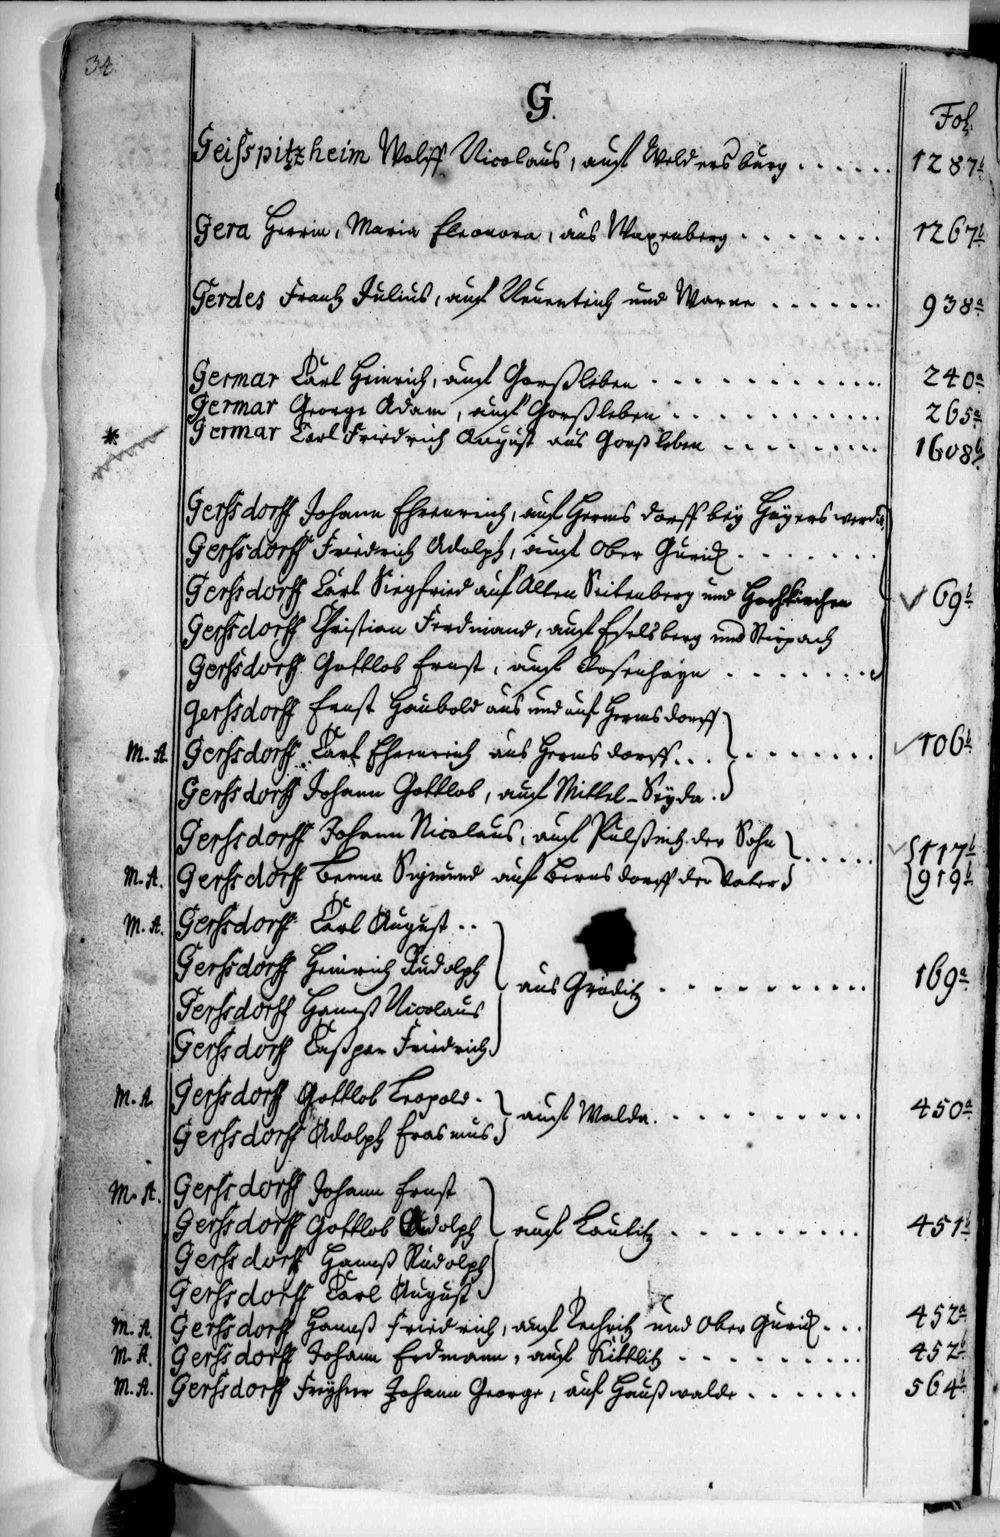 34.
G.
Fol.
Geisspitzheim Wolff Nicolaus, auf Woldersburg . . . . . . 1287b
Gera Herrin, Maria Eleonora, aus Waxenberg . . . . . . . 1267b
Gerdes Frantz Julius, auf Neuenteich und Warne . . . . . . 938a
Germar Carl Heinrich, auf Gorßleben . . . . . . . . . . . . 240a
Germar George Adam, auf Gorßleben . . . . . . . . . . . 265a
* Germar Carl Friedrich August aus Gorßleben . . . . . . . . 1608b
Gerssdorff Johann Ehrenreich, auf Hermsdorff bey Hayerswerda
Gerssdorff Friedrich Adolph, auf Ober Gurick . . . . . . .
Gerssdorff Carl Siegfried auf Alten Seitenberg und Hochkirchen 69b
Gerssdorff Christian Ferdinand, auf und
Gerssdorff Gottlob Ernst, auf Rosenhayn . . . . . . .
Gerssdorff Ernst Haubold aus und auf Hermsdorff
M. A. Gerssdorff Carl Ehrenreich aus Hermsdorff . . . 106b
Gerssdorff Johann Gottlob, auf Mittel-Seyda .
Gerssdorff Johann Nicolaus, auf Pulßnitz der Sohn . . . . . 117b
M. A. Gerssdorff Sigmund auf Bernsdorff der Vater 919b
M. A. Gerssdorff Carl August . .
Gerssdorff Heinrich Rudolph
aus Gröditz . . . . . . . . . . 169a
Gerssdorff Hannß Nicolaus
Gerssdorff Caßper Friedrich
M. A. Gerssdorff Gottlob Leopold .
auf Walda . . . . . . . . . 450a
Gerssdorff Adolph Erasmus
M. A. Gerssdorff Johann Ernst
Gerssdorff Gottlob Adolph auf Lautitz . . . . . . . . 451b
Gerssdorff Hannß Rudolph
Gerssdorff Carl August
M. A. Gerssdorff Hannß Friedrich, auf und Ober Gurick . . . 452a
M. A. Gerssdorff Johann Erdmann, auf Kittlitz . . . . . . . . . 452b
M. A. Gerssdorff Freyherr Johann George, auf Haußwalde . . . . . . 564b